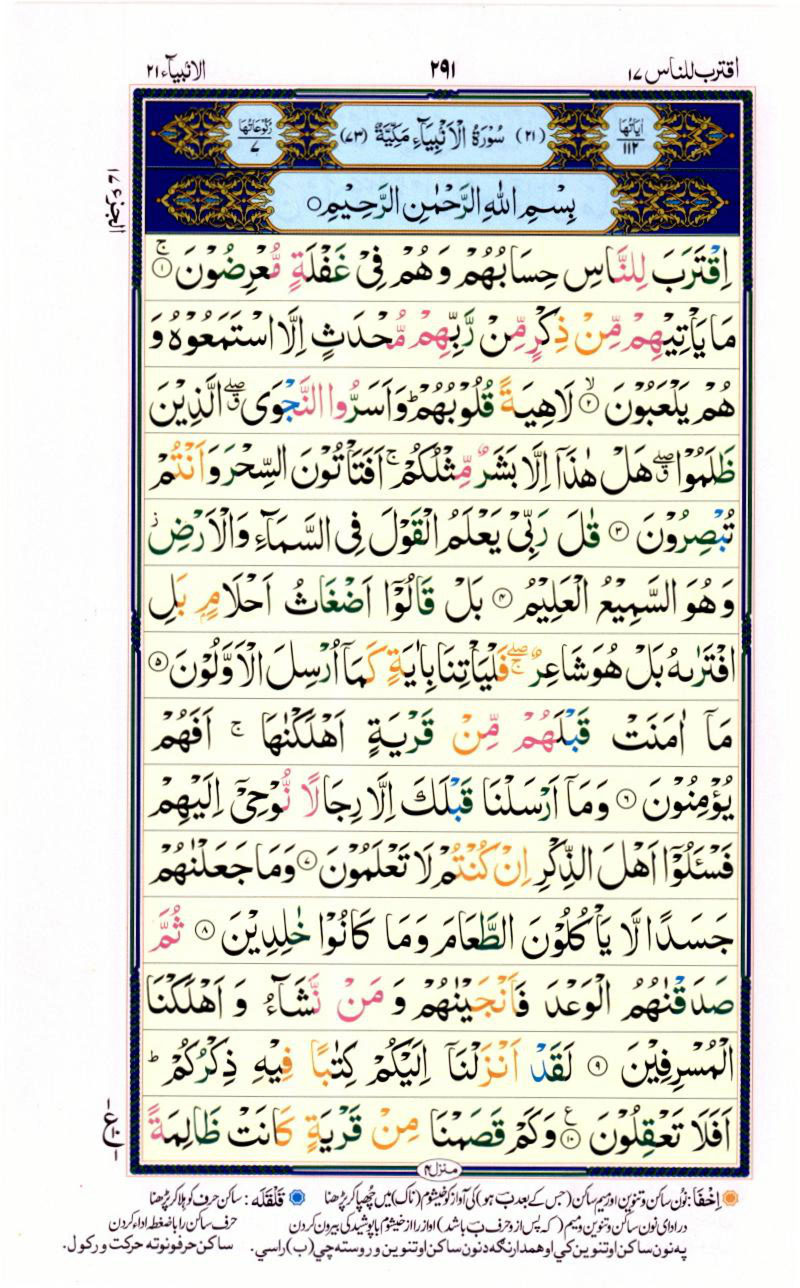 اقترب للناس ١٧
٢٩١
الانبیآء ٢١
اٰیاتها ١١٢
(٢١) سُوْرَةُ الْاَنْۢبِیَآءِ مَكِّیَّةٌ (٧٣)
رکوعاتها ٧
بِسْمِ اللهِ الرَّحْمٰنِ الرَّحِیْمِ
الجزء ١٧
اِقْتَرَبَ لِلنَّاسِ حِسَابُهُمْ وَهُمْ فِیْ غَفْلَةٍ مُّعْرِضُوْنَ ۚ ١
مَا یَاْتِیْهِمْ مِّنْ ذِكْرٍ مِّنْ رَّبِّهِمْ مُّحْدَثٍ اِلَّا اسْتَمَعُوْهُ وَ
هُمْ یَلْعَبُوْنَ ۙ ٢ لَاهِیَةً قُلُوْبُهُمْ ؕ وَاَسَرُّوا النَّجْوَی ۖق الَّذِیْنَ
ظَلَمُوْا ۖق هَلْ هٰذَاۤ اِلَّا بَشَرٌ مِّثْلُكُمْ ۚ اَفَتَاْتُوْنَ السِّحْرَ وَاَنْتُمْ
تُبْصِرُوْنَ ٣ قٰلَ رَبِّیْ یَعْلَمُ الْقَوْلَ فِی السَّمَآءِ وَالْاَرْضِ ز
وَهُوَ السَّمِیْعُ الْعَلِیْمُ ٤ بَلْ قَالُوْۤا اَضْغَاثُ اَحْلَامٍۭ بَلِ
افْتَرٰىهُ بَلْ هُوَ شَاعِرٌ ۖۚ فَلْیَاْتِنَا بِاٰیَةٍ كَمَاۤ اُرْسِلَ الْاَوَّلُوْنَ ٥
مَاۤ اٰمَنَتْ قَبْلَهُمْ مِّنْ قَرْیَةٍ اَهْلَكْنٰهَا ۚ اَفَهُمْ
یُؤْمِنُوْنَ ٦ وَمَاۤ اَرْسَلْنَا قَبْلَكَ اِلَّا رِجَالًا نُّوْحِیْۤ اِلَیْهِمْ
فَسْـَٔلُوْۤا اَهْلَ الذِّكْرِ اِنْ كُنْتُمْ لَا تَعْلَمُوْنَ ٧ وَمَا جَعَلْنٰهُمْ
جَسَدًا لَّا یَاْكُلُوْنَ الطَّعَامَ وَمَا كَانُوْا خٰلِدِیْنَ ٨ ثُمَّ
صَدَقْنٰهُمُ الْوَعْدَ فَاَنْجَیْنٰهُمْ وَ مَنْ نَّشَآءُ وَ اَهْلَكْنَا
الْمُسْرِفِیْنَ ٩ لَقَدْ اَنْزَلْنَاۤ اِلَیْكُمْ كِتٰبًا فِیْهِ ذِكْرُكُمْ ؕ
اَفَلَا تَعْقِلُوْنَ ۧ ١٠ وَكَمْ قَصَمْنَا مِنْ قَرْیَةٍ كَانَتْ ظَالِمَةً
ع
منزل ٤
اِخْفَا: نُون ساکن و تنوین اور میم ساکن (جس کے بعد ب ہو) کی آواز کو خیشوم (ناک) میں چُھپا کر پڑھنا قَلْقَلَه: ساکن حرف کو ہلا کر پڑھنا
در ادای نون ساکن و تنوین و میم (که پس از و حرف ب باشد) اواز را از خیشوم با پوشیدگی بیرون کردن حرف ساکن را با ضغطه اداء کردن
په نون ساکن او تنوین کي او همدارنگه د نون ساکن او تنوین و روسته چي (ب) راسي. ساکن حرفونو ته حرکت ورکول.